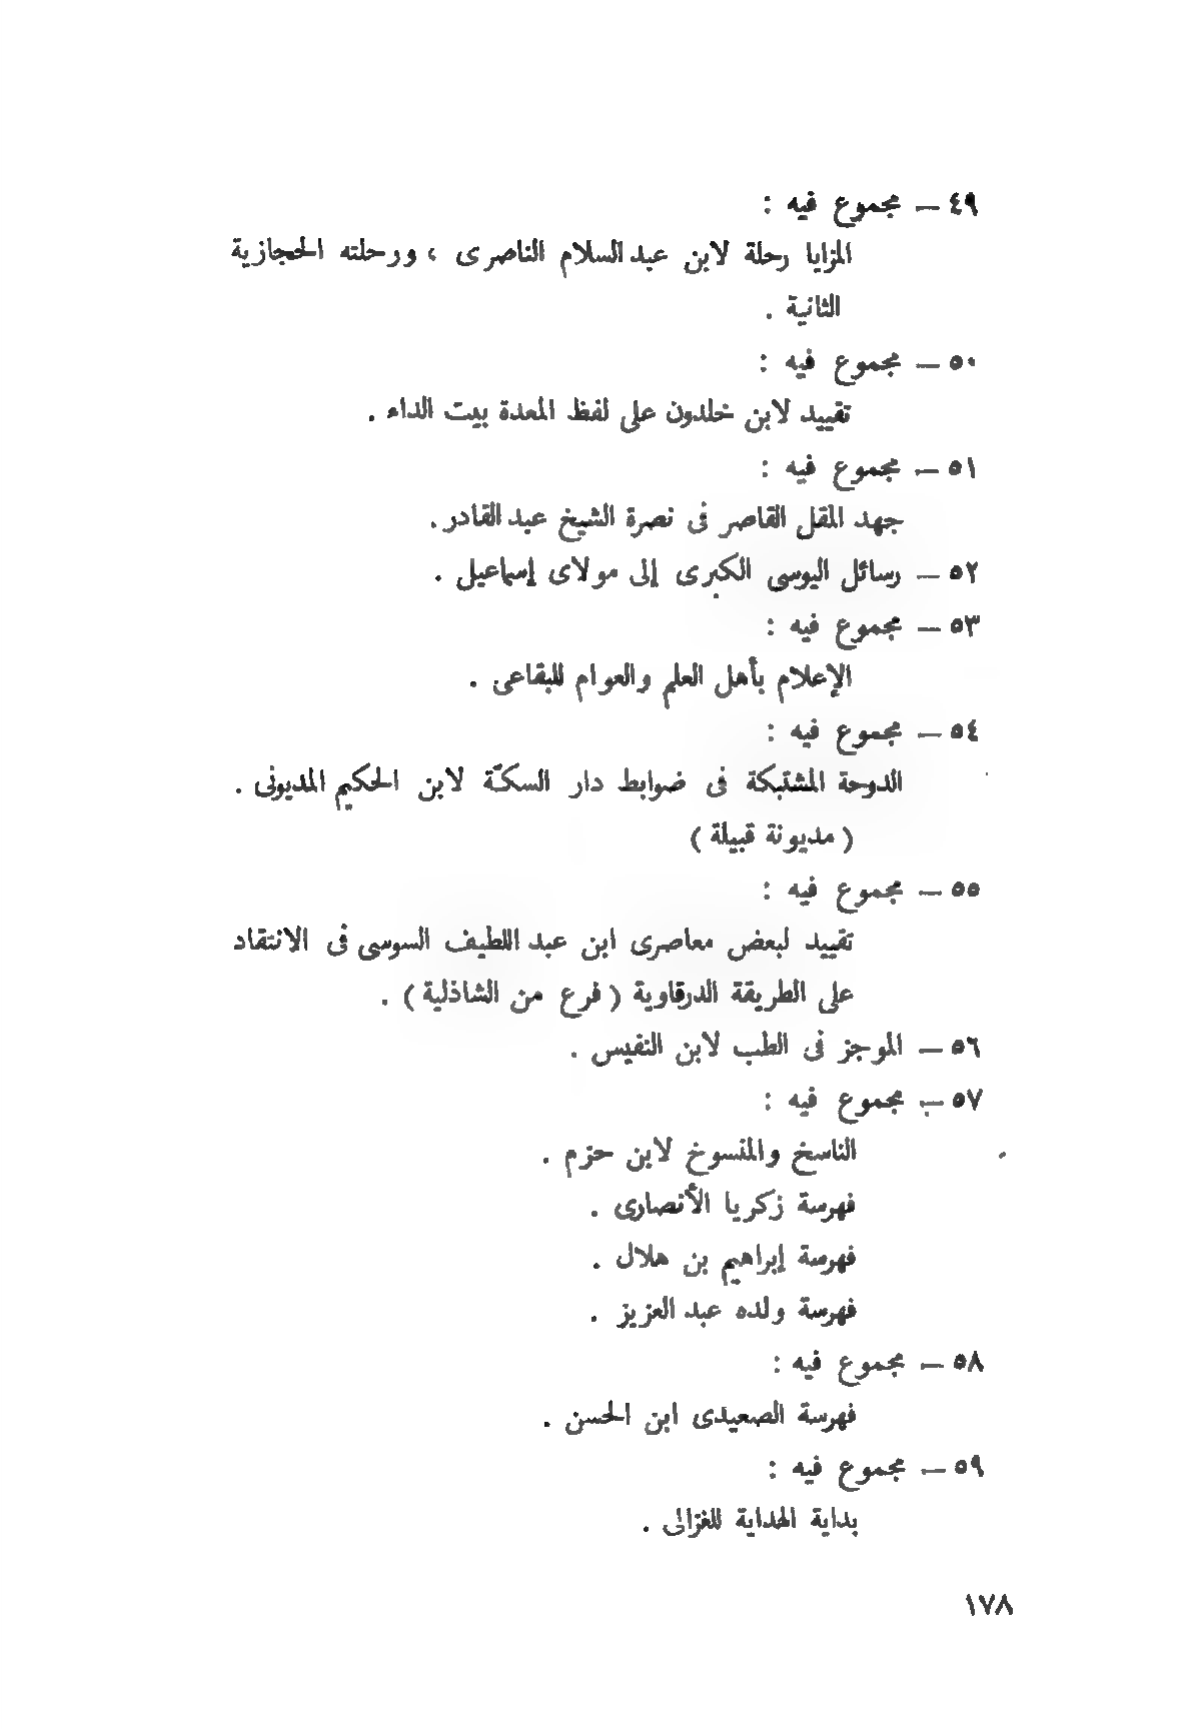 ٤٩ — مجموع فيه :
المزايا رحلة لابن عبد السلام الناصرى ، ورحلته الحجازية
الثانية .
٥٠ — مجموع فيه :
تقييد لابن خلدون على لفظ المعدة بيت الداء .
٥١ — مجموع فيه :
جهد المقل القاصر فى نصرة الشيخ عبد القادر .
٥٢ — رسائل اليوسى الكبرى إلى مولاى إسماعيل .
٥٣ — مجموع فيه :
الإعلام بأهل العلم والعوام للبقاعى .
٥٤ — مجموع فيه :
الدوحة المشتبكة فى ضوابط دار السكّة لابن الحكيم المديونى .
( مديونة قبيلة )
٥٥ — مجموع فيه :
تقييد لبعض معاصرى ابن عبد اللطيف السوسى فى الانتقاد
على الطريقة الدرقاوية ( فرع من الشاذلية ) .
٥٦ — الموجز فى الطب لابن النفيس .
٥٧ — مجموع فيه :
الناسخ والمنسوخ لابن حزم .
فهرسة زكريا الأنصارى .
فهرسة إبراهيم بن هلال .
فهرسة ولده عبد العزيز .
٥٨ — مجموع فيه :
فهرسة الصعيدى ابن الحسن .
٥٩ — مجموع فيه :
بداية الهداية للغزالى .
١٧٨